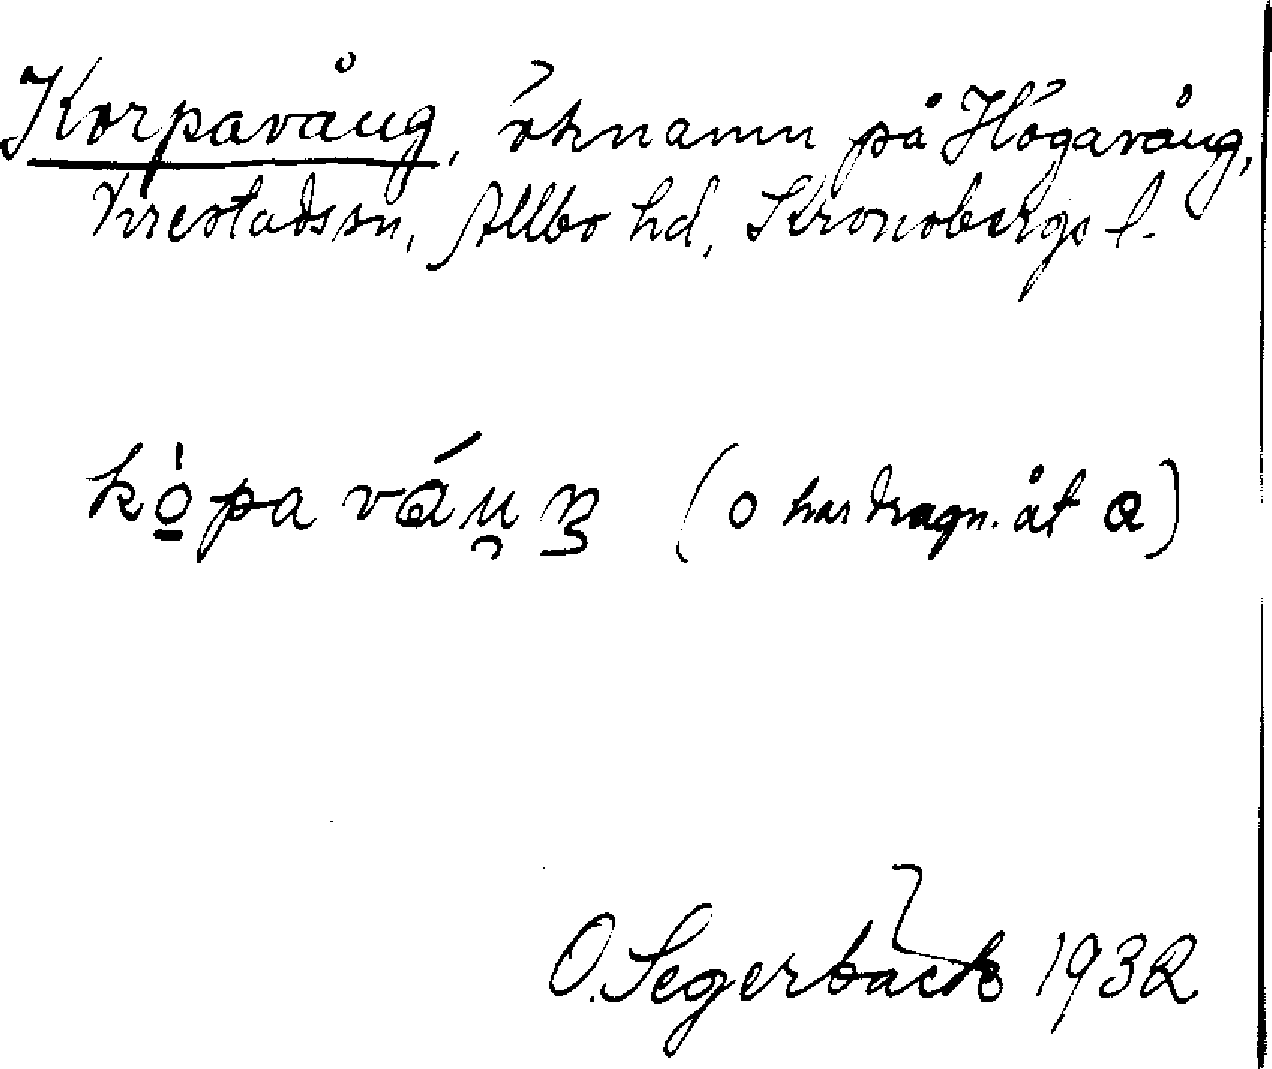 Korpavång, öknamn på Högavång,
Virestads sn, Allbo hd, Kronobergs l.
(o har dragn. åt a)
O. Segerbäck 1932